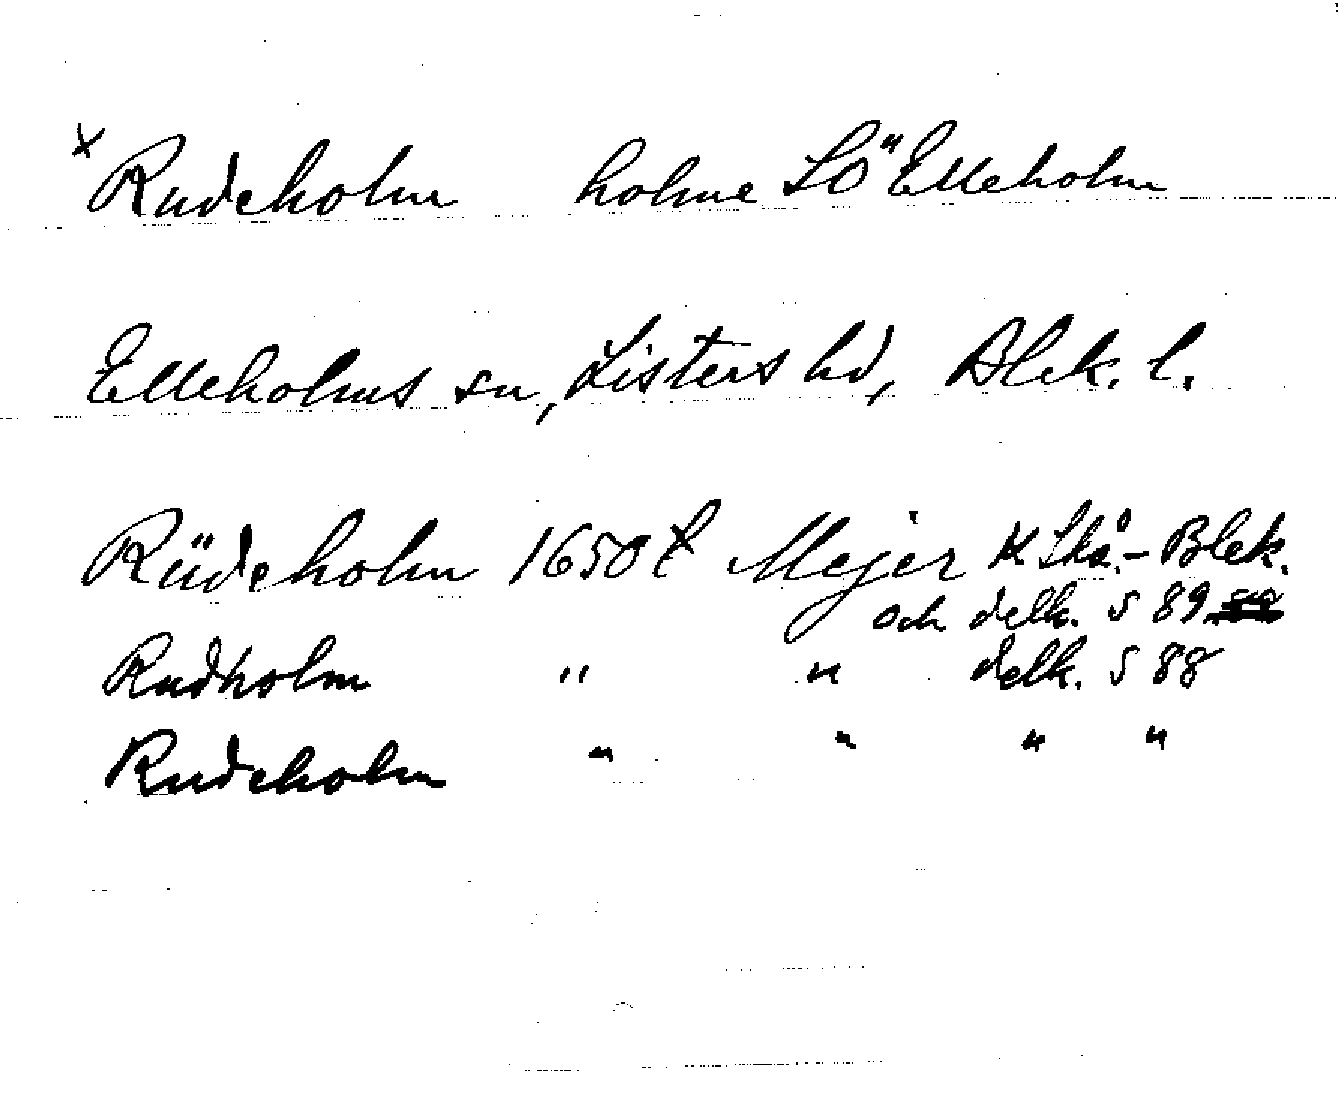 x Rudeholm holme SÖ Elleholm
Elleholms sn, Listers hd, Blek. l.
Rüdeholm 1650 t Mejer K Skå.- Blek.
och delk. S 89
Rudholm " " delk. S 88
Rudeholm " " " "